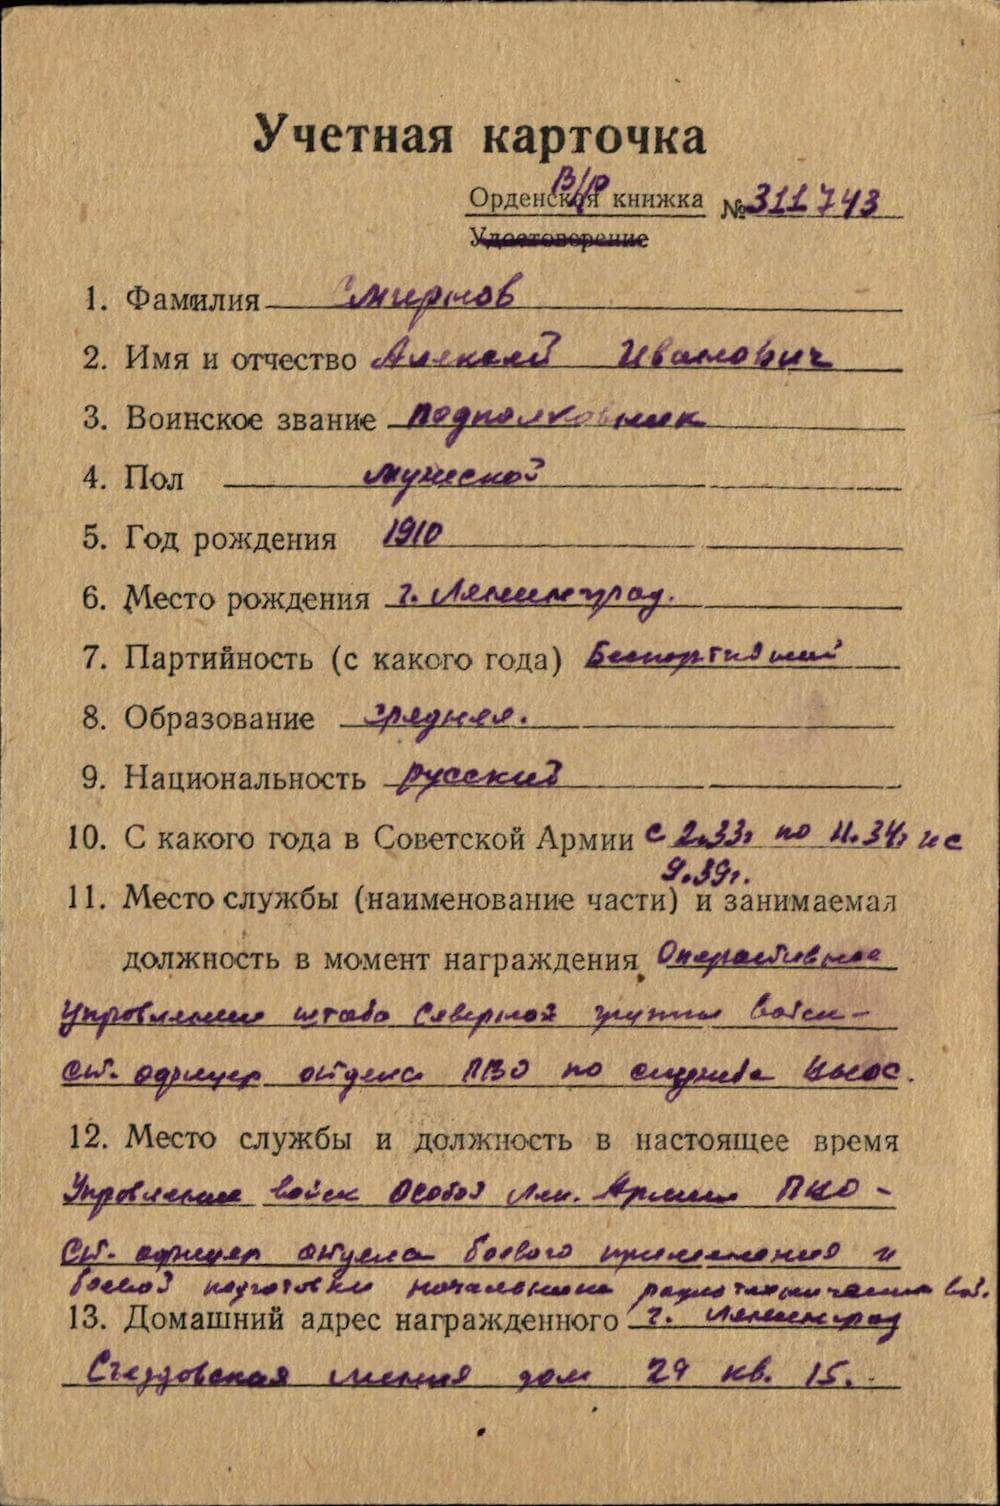 Учетная карточка
В/р
Орденская книжка № 311743
Удостоверение
1. Фамилия Смирнов
2. Имя и отчество Алексей Иванович
3. Воинское звание Подполковник
4. Пол мужской
5. Год рождения 1910
6. Место рождения г. Ленинград.
7. Партийность (с какого года) Беспартийный
8. Образование среднее.
9. Национальность русский
10. С какого года в Советской Армии с 2.33г по 11.34г и с
9.39г.
11. Место службы (наименование части) и занимаемая
должность в момент награждения Оперативное
Управление штаба Северной группы войск –
ст. офицер отдела ПВО по службе ВНОС.
12. Место службы и должность в настоящее время
Управление войск Особой Лен. Армии ПВО –
ст. офицер отдела боевого применения и
боевой подготовки начальника радиотехнических войс.
13. Домашний адрес награжденного г. Ленинград
Съездовская линия дом 29 кв. 15.